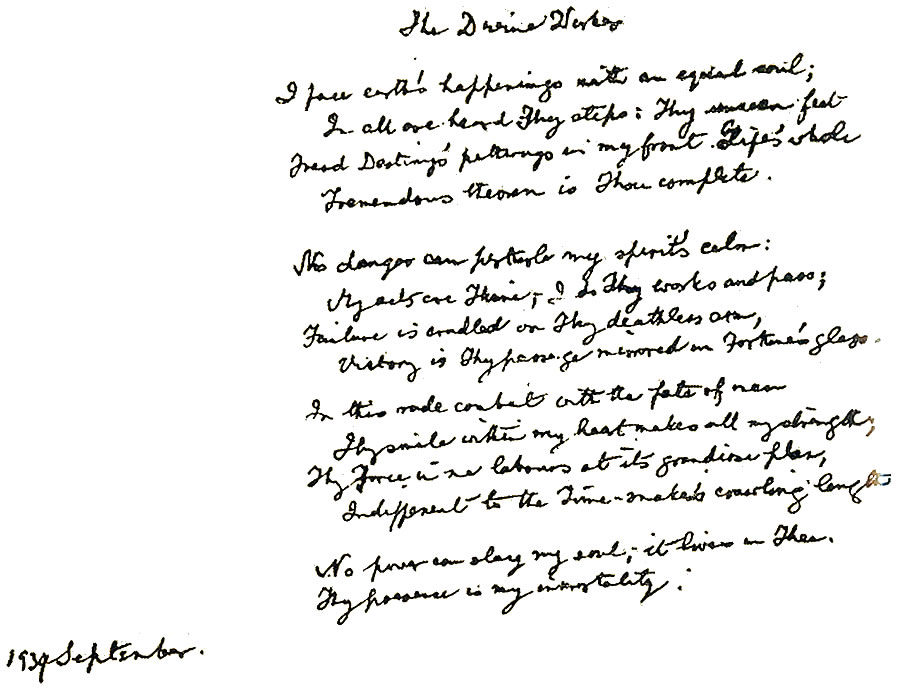 The Divine Worker
I face earth's happenings with an equal soul;
In all are heard Thy steps: Thy unseen feet
Tread Destiny's pathways in my front. Life's whole
Tremendous theorem is Thou complete.
No danger can perturb my spirit's calm:
My acts are Thine; I do Thy works and pass;
Failure is cradled on Thy deathless arm,
Victory is Thy passage mirrored in Fortune's glass.
In this rude combat with the fate of man
Thy smile within my heart makes all my strength;
Thy Force in me labours at its grandiose plan,
Indifferent to the Time-snake's crawling length
No power can slay my soul; it lives in Thee.
Thy presence is my immortality.
1939 September.